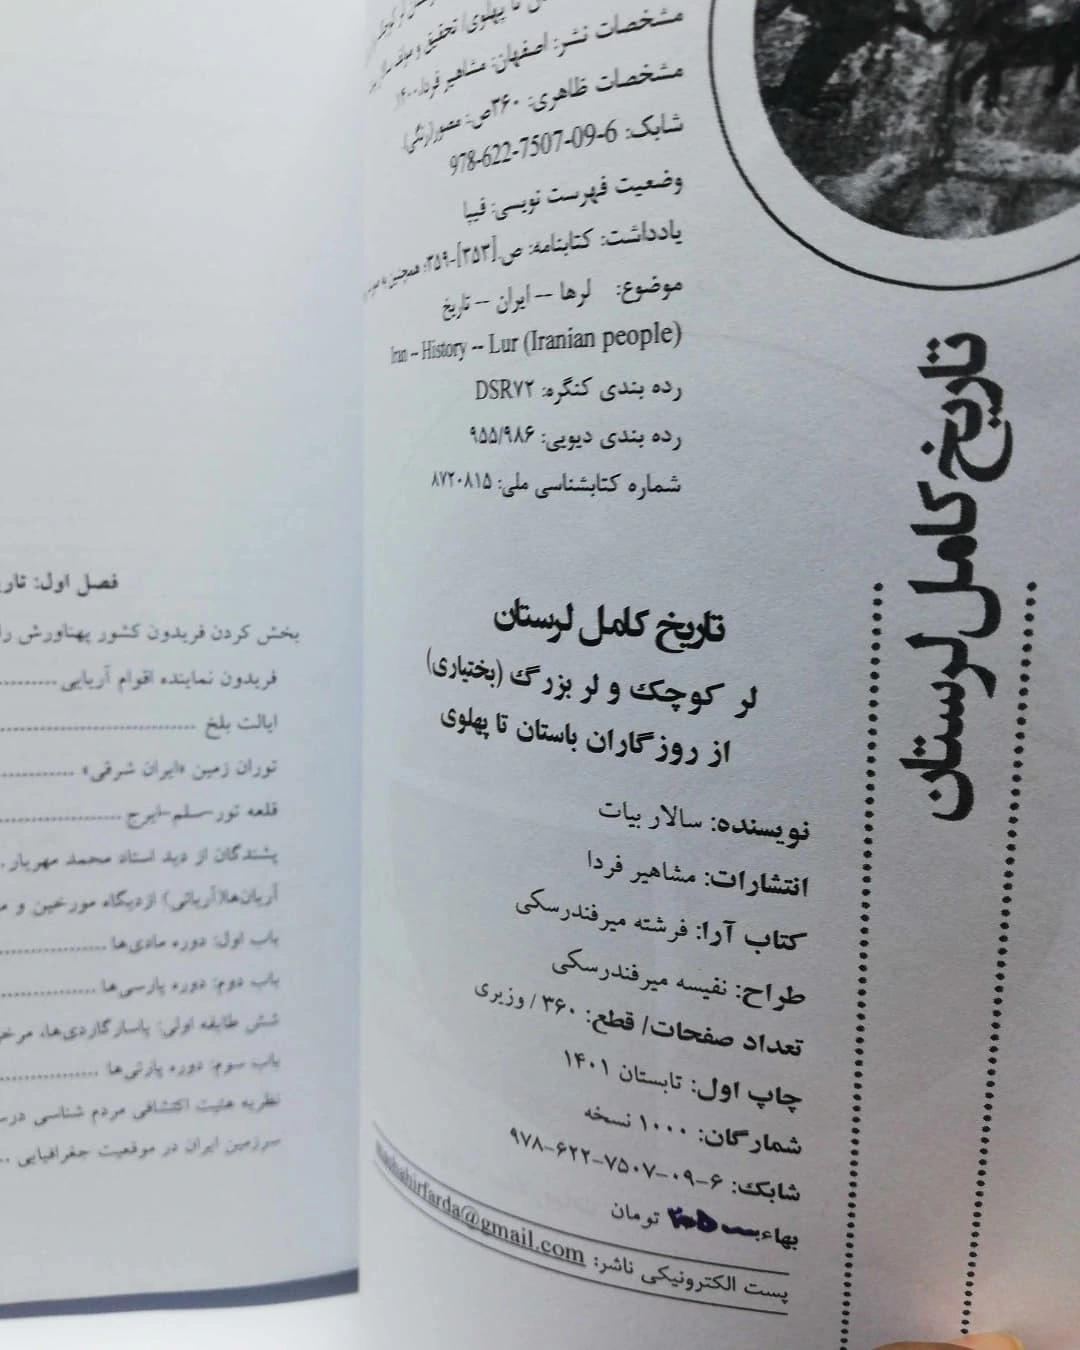 تا پهلوی/ تحقیق و
مشخصات نشر: اصفهان: مشاهیر فردا، ۱۴۰۰.
مشخصات ظاهری: ۳۶۰ص.: مصور(رنگی).
شابک: 978-622-7507-09-6
وضعیت فهرست نویسی: فیپا
یادداشت: کتابنامه: ص.[۳۵۳]-۳۵۹؛ همچنین به
موضوع: لرها -- ایران -- تاریخ
Iran -- History -- Lur (Iranian people)
رده بندی کنگره: DSR۷۲
رده بندی دیویی: ۹۵۵/۹۸۶
شماره کتابشناسی ملی: ۸۷۲۰۸۱۵
تاریخ کامل لرستان
تاریخ کامل لرستان
لر کوچک و لر بزرگ (بختیاری)
از روزگاران باستان تا پهلوی
نویسنده: سالار بیات
انتشارات: مشاهیر فردا
کتاب آرا: فرشته میرفندرسکی
طراح: نفیسه میرفندرسکی
تعداد صفحات/ قطع: ۳۶۰ / وزیری
چاپ اول: تابستان ۱۴۰۱
شمارگان: ۱۰۰۰ نسخه
شابک: ۶-۰۹-۷۵۰۷-۶۲۲-۹۷۸
بهاء: تومان
پست الکترونیکی ناشر: mashahirfarda@gmail.com
فصل اول:
بخش کردن فریدون کشور پهناورش را
فریدون نماینده اقوام آریایی ..........
ایالت بلخ ..............................
توران زمین «ایران شرقی» ............
قلعه تور-سلم-ایرج ....................
پشندگان از دید استاد محمد مهریار .
آریان‌ها(آریائی) ازدیدگاه مورخین و
باب اول: دوره مادی‌ها ................
باب دوم: دوره پارسی‌ها ..............
شش طایفه اولی: پاسارگادی‌ها،
باب سوم: دوره پارتی‌ها ..............
نظریه هئیت اکتشافی مردم شناسی
سرزمین ایران در موقعیت جغرافیایی ..